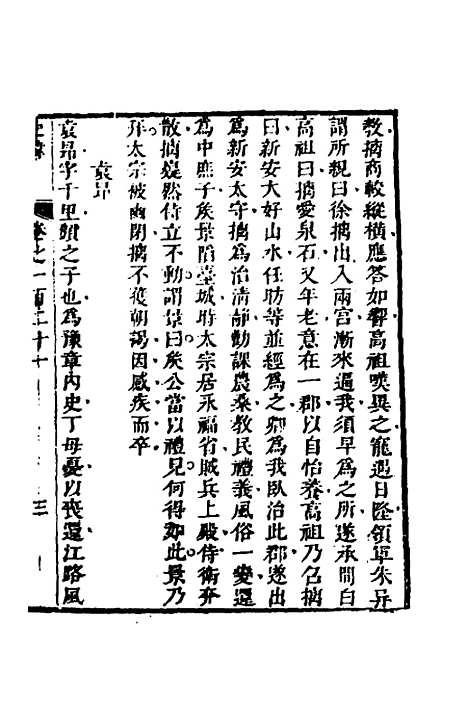 教摛商較縱橫應答如響高祖嘆異之寵遇日隆領軍朱异
謂所親曰徐摛出入兩宮漸來逼我須早爲之所遂承間白
高祖曰摛愛泉石又年老意在一郡以自怡養高祖乃召摛
曰新安大好山水任昉等並經爲之卿爲我臥治此郡遂出
爲新安太守摛爲治清靜勸課農桑教民禮義風俗一變還
爲中庶子矦景陷臺城時太宗居永福省賊兵上殿侍衛奔
散摛嶷然侍立不動謂景曰矦公當以禮見何得如此景乃
拜太宗被幽閉摛不獲朝謁因感疾而卒
袁昻
袁昻字千里顗之子也爲豫章內史丁母憂以喪還江路風
卷之一百二十
三